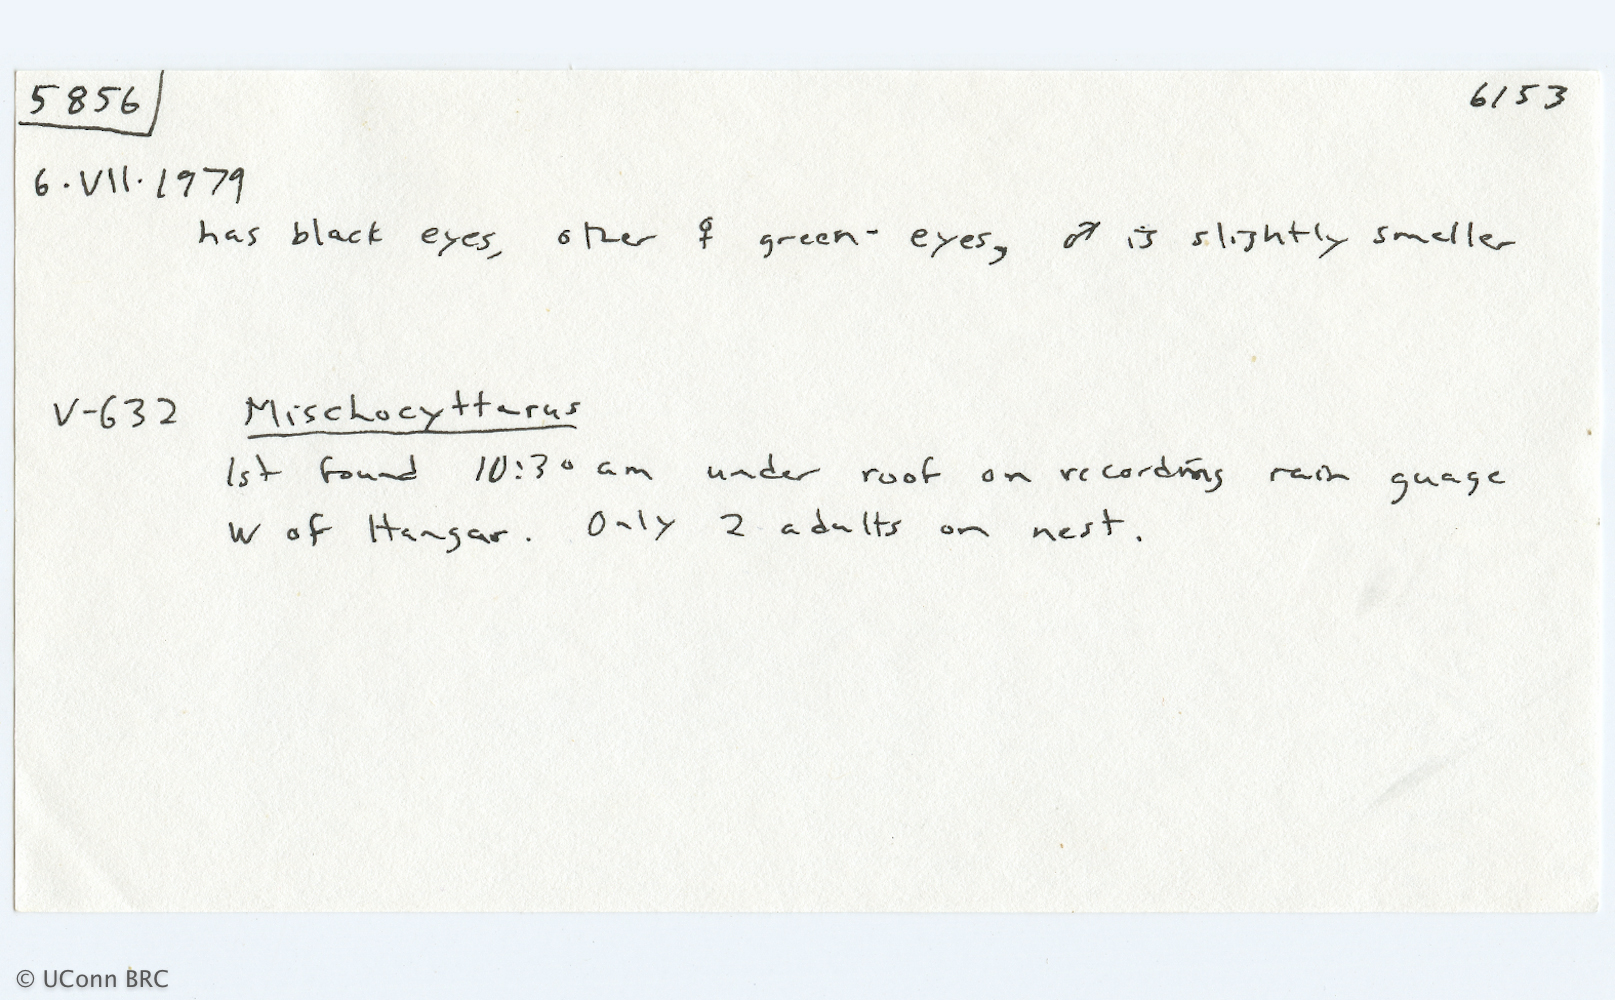 5856
6153
6.VII.1979
has black eyes, other ♀ green-eyes, ♂ is slightly smaller
V-632 Mischocyttarus
1st found 10:30 am under roof on recording rain guage
W of Hangar. Only 2 adults on nest.
© UConn BRC